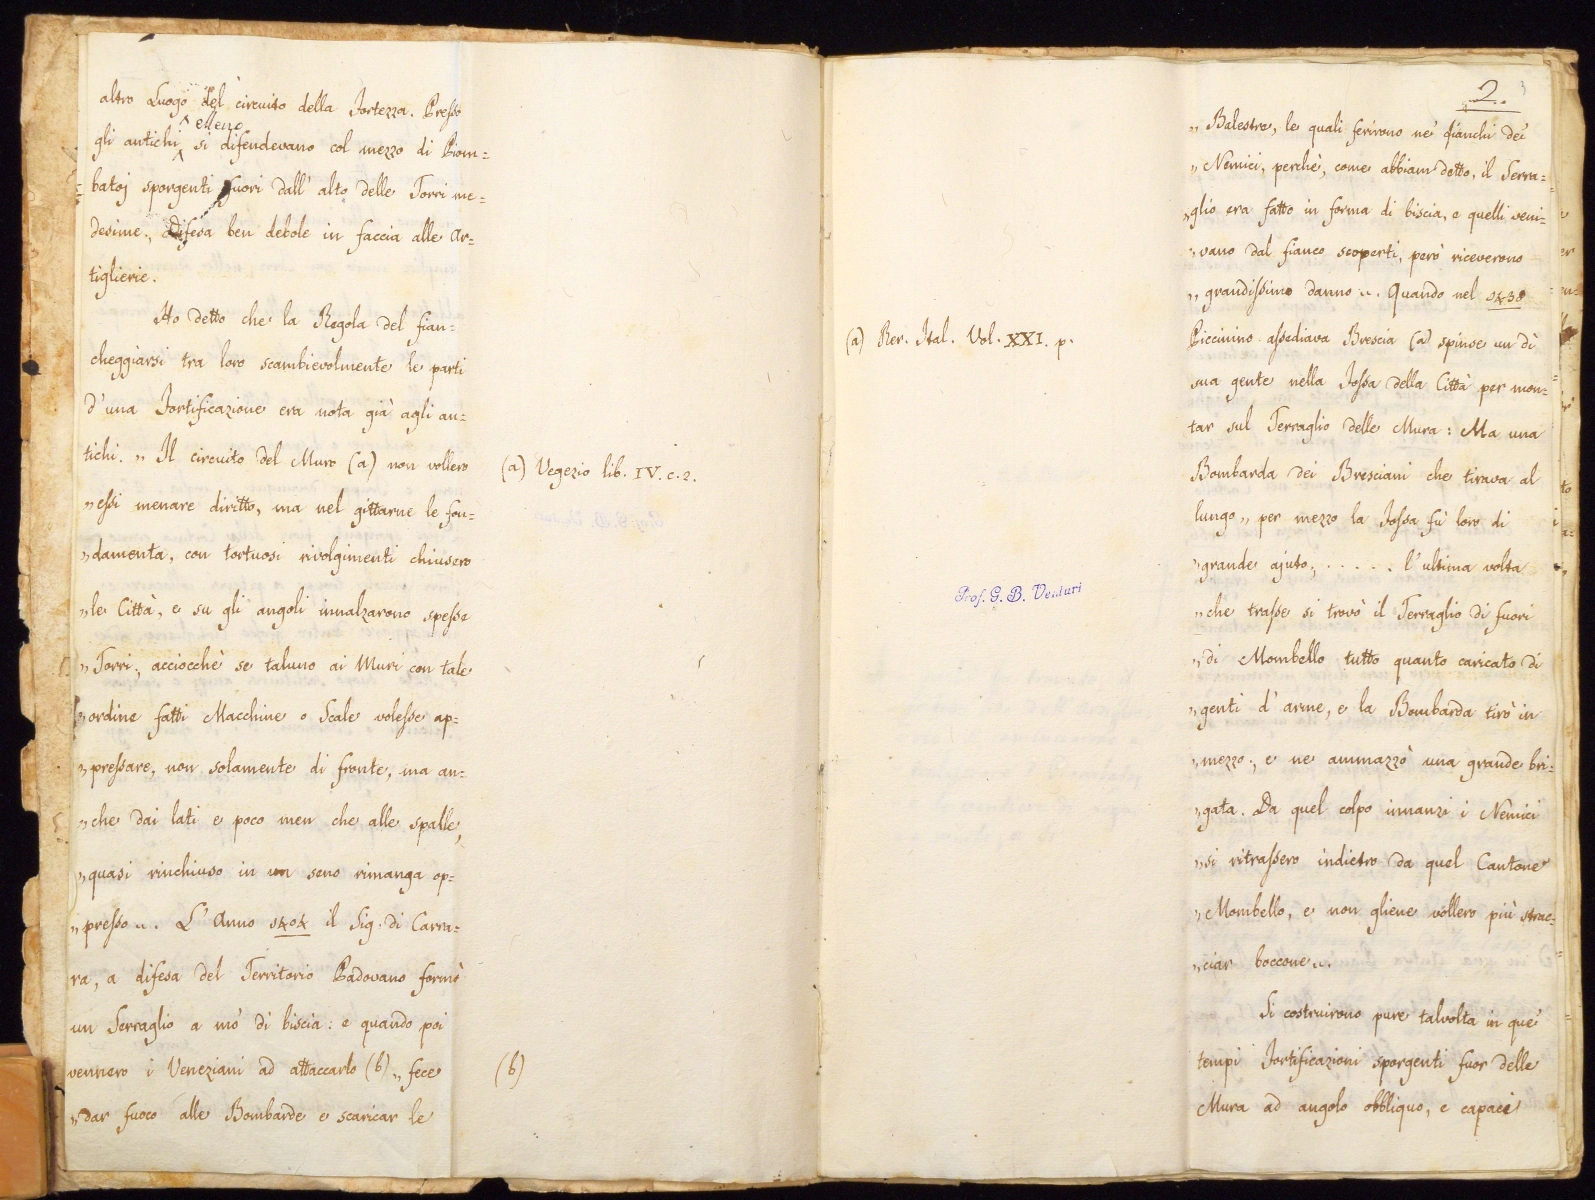 altro Luogo del circuito della Fortezza. Presso
elleno
gli antichi si difendevano col mezzo di Piom=
batoj sporgenti fuori dall' alto delle Torri me=
desime; Difesa ben debole in faccia alle Ar=
tiglierie.
Ho detto che la Regola del fian=
cheggiarsi tra loro scambievolmente le parti
d'una Fortificazione era nota già agli an=
tichi. „ Il circuito del Muro (a) non vollero
„ essi menare diritto, ma nel gittarne le fon=
„ damenta, con tortuosi rivolgimenti chiusero
„ le Città, e su gli angoli innalzarono spesse
„ Torri; acciocchè se taluno ai Muri con tale
„ ordine fatti Macchine o Scale volesse ap=
„ pressare, non solamente di fronte, ma an=
„ che dai lati e poco men che alle spalle,
„ quasi rinchiuso in un seno rimanga op=
„ presso „. L'Anno 1404 il Sig. di Carra=
ra, a difesa del Territorio Padovano formò
un Serraglio a mo' di biscia: e quando poi
vennero i Veneziani ad attaccarlo (b) „ fece
„ dar fuoco alle Bombarde e scaricar le
(a) Vegezio lib. IV. c. 2.
(b)
(a) Rer. Ital. Vol. XXI. p.
Prof. G. B. Venturi
2. 3
„ Balestre, le quali ferirono ne' fianchi dei
„ Nemici, perchè, come abbiam detto, il Serra=
„ glio era fatto in forma di biscia, e quelli veni=
„ vano dal fianco scoperti, però riceverono
„ grandissimo danno „. Quando nel 1438
Piccinino assediava Brescia (a) spinse un dì
sua gente nella Fossa della Città per mon=
tar sul Terraglio delle Mura: Ma una
Bombarda dei Bresciani che tirava al
lungo „ per mezzo la Fossa fù loro di
„ grande ajuto; . . . . . l'ultima volta
„ che trasse si trovò il Terraglio di fuori
„ di Mombello tutto quanto caricato di
„ genti d'arme, e la Bombarda tirò in
„ mezzo; e ne ammazzò una grande bri=
„ gata. Da quel colpo innanzi i Nemici
„ si ritrassero indietro da quel Cantone
„ Mombello, e non gliene vollero più strac=
„ ciar boccone „.
Si costruirono pure talvolta in que'
tempi Fortificazioni sporgenti fuor delle
Mura ad angolo obbliquo, e capaci